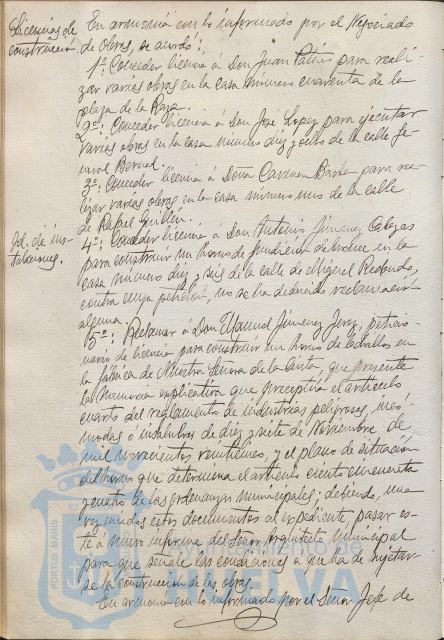 Licencias de construcción
En armonía con lo informado por el Negociado
de Obras, se acordó:
1º: Conceder licencia á Don Juan Patiño para reali-
zar varias obras en la casa número cuarenta de la
plaza de la
2º: Conceder licencia á Don José Lopez para ejecutar
varias obras en la casa número diez y ocho de la calle Ge-
neral Bernal.
3º: Conceder licencia á Doña Carmen Barba para rea-
lizar varias obras en la casa número uno de la calle
de Rafael Guillén.
Id. de ins-
talaciones.
4º: Conceder licencia á Don Antonio Jimenez Cabezas
para construir un horno de fundición de bronce en la
casa número diez y seis de la calle de Miguel Redondo,
contra cuya petición, no se ha deducido reclamación
alguna.
5º: Reclamar á Don Manuel Jimenez Jerez, peticio-
nario de licencia para construir un horno de ladrillos en
la fábrica de Nuestra Señora de la Cinta, que presente
la Memoria explicativa que preceptúa el artículo
cuarto del reglamento de industrias peligrosas, incó-
modas ó insalubres de diez y siete de Noviembre de
mil novecientos veinticinco, y el plano de situación
del horno que determina el artículo ciento cincuenta
y cuatro de las ordenanzas municipales; debiendo, una
vez unidos estos documentos al expediente, pasar es-
te á nuevo informe del Señor Arquitecto municipal
para que señale las condiciones á que ha de sujetar-
se la construcción de las obras.
En armonía con lo informado por el Señor Jefe de
PORTUS MARIS
Ayuntamiento de
HUELVA